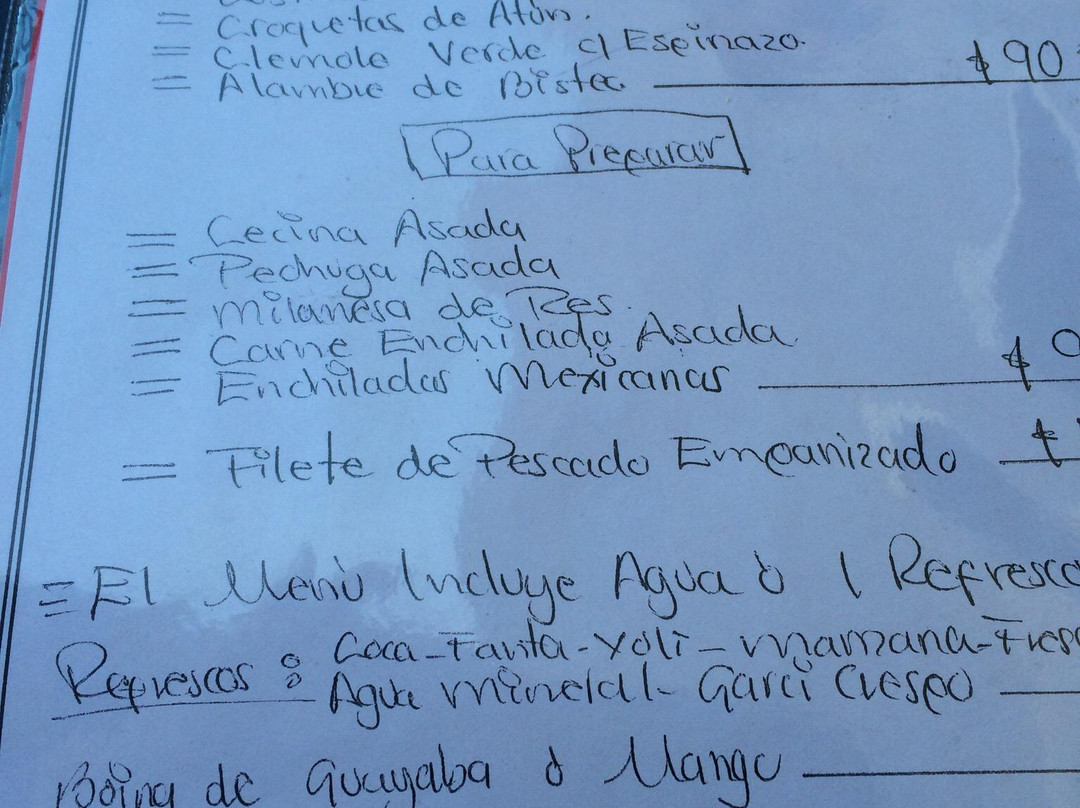 = Croquetas de Atún.
= Clemole Verde c/ Espinazo.
= Alambre de Bistec $90
Para Preparar
= Cecina Asada
= Pechuga Asada
= Milanesa de Res.
= Carne Enchilada Asada
= Enchiladas Mexicanas $
= Filete de Pescado Empanizado $
= El Menú Incluye Agua ó 1 Refresco
Refrescos: Coca-Fanta-Yoli-Manzana-Fres
Agua Mineral- Garci Crespo
de Guayaba ó Mango